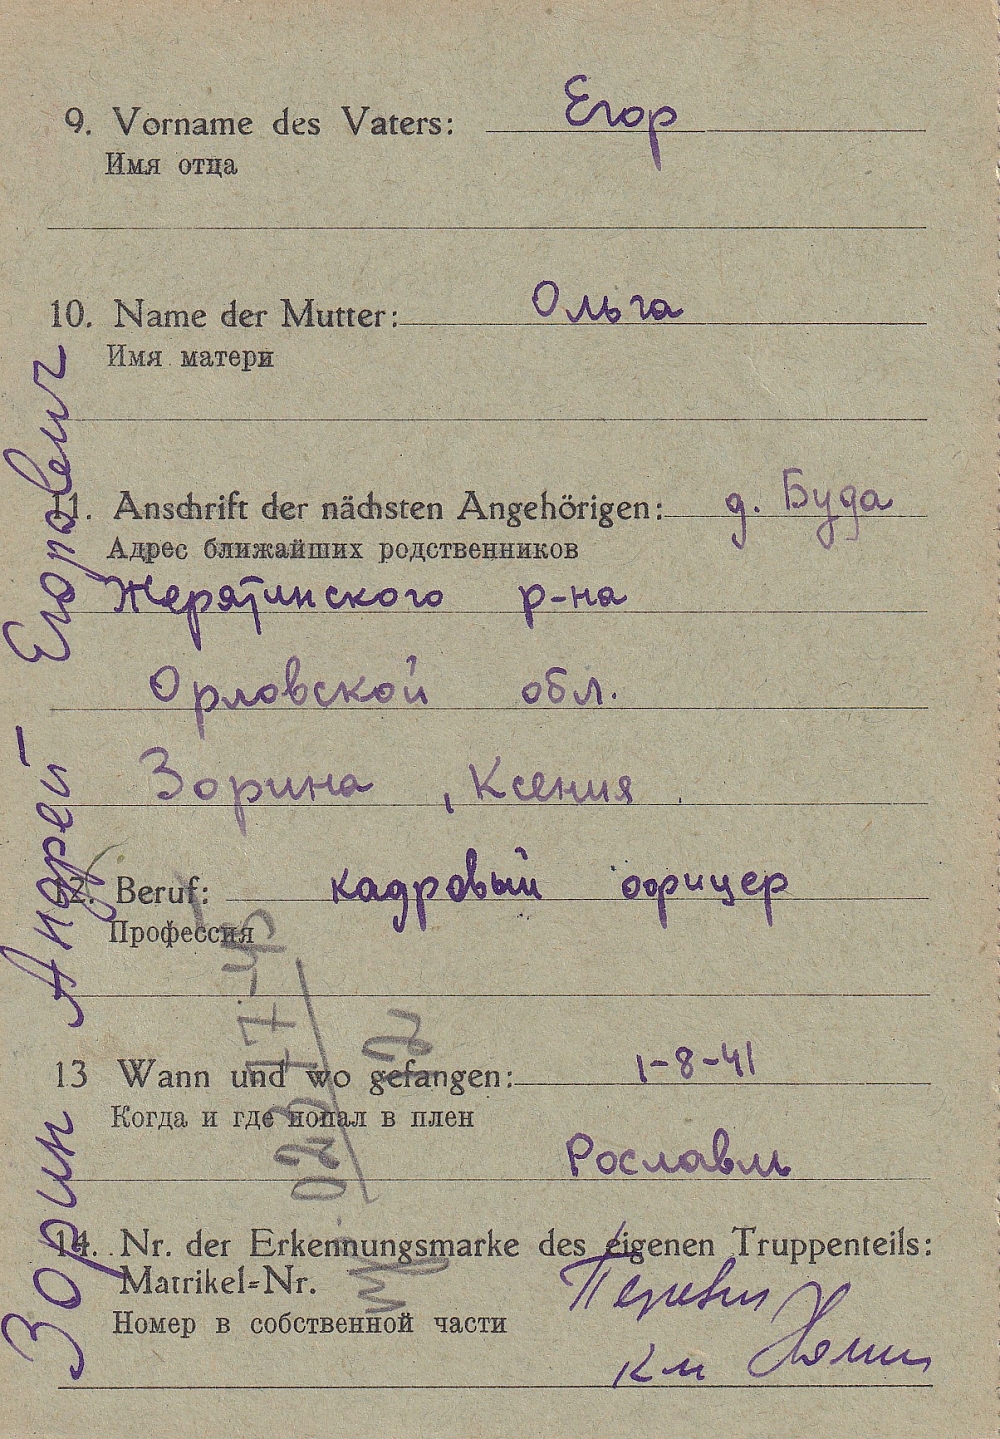 9. Vorname des Vaters: Егор
Имя отца
10. Name der Mutter: Ольга
Имя матери
11. Anschrift der nächsten Angehörigen: д. Буда
Адрес ближайших родственников
Жерятинского р-на
Орловской обл.
Зорина, Ксения
12. Beruf: кадровый офицер
Профессия
13 Wann und wo gefangen: 1-8-41
Когда и где попал в плен
Рославль
14. Nr. der Erkennungsmarke des eigenen Truppenteils:
Matrikel=Nr.
Перевел
Номер в собственной части
Зорин Андрей Егорович